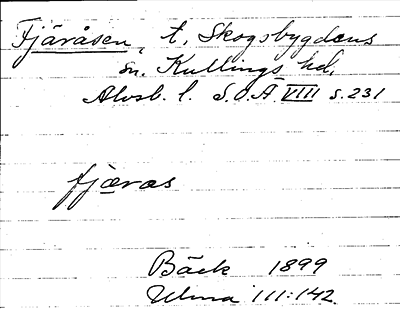 Fjäråsen, t. Skogsbygdens
sn. Kullings hd.
Älvsb. l. S.O.Ä VIII s. 231
fjæras
Bäck 1899
Ulma 111:142.